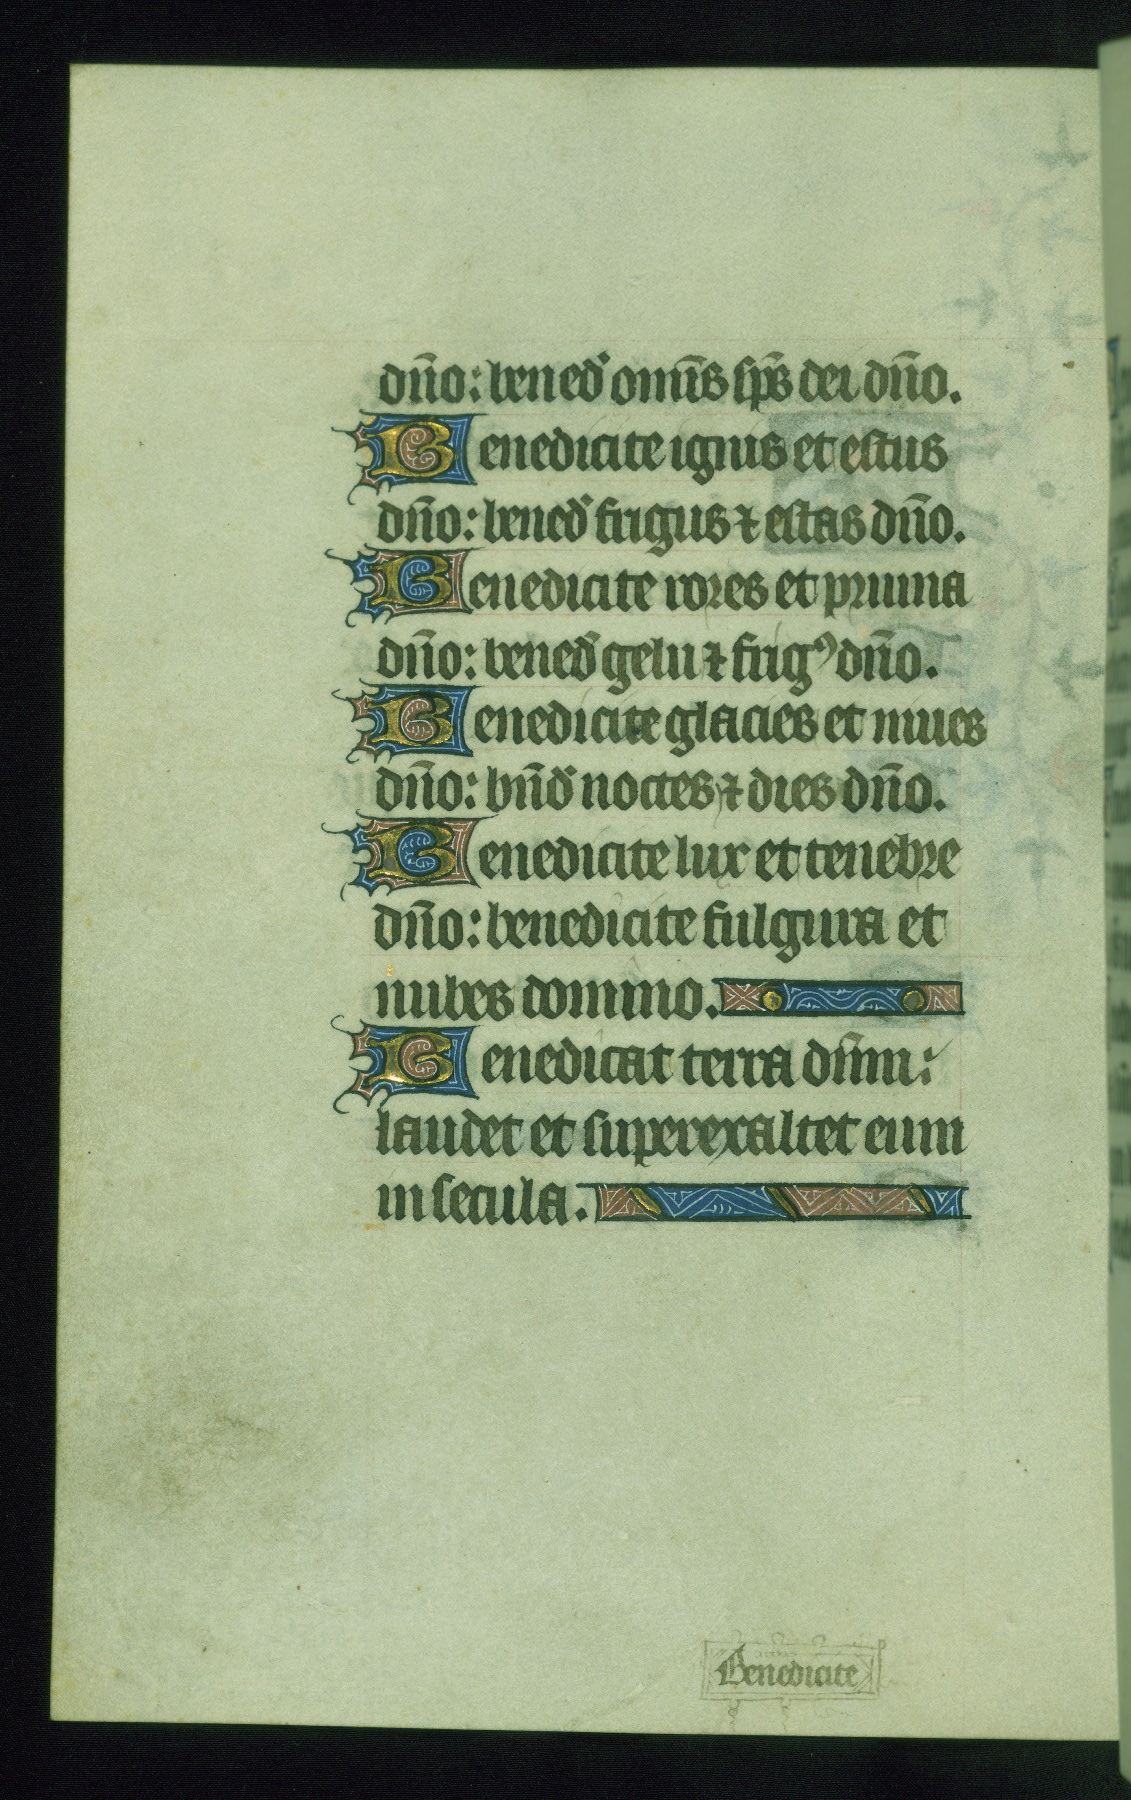 dn̄o: bened̉ om̄īs sp̄s dei dn̄o.
Benedicite ignis et estus
dn̄o: bened̉ frigus ⁊ estas dn̄o.
Benedicite rores et pruina
dn̄o: bened̉ gelu ⁊ frigꝰ dn̄o.
Benedicite glacies et niues
dn̄o: bn̄d̉ noctes ⁊ dies dn̄o.
Benedicite lux et tenebre
dn̄o: benedicite fulgura et
nubes domino.
Benedicat terra dn̄m:
laudet et superexaltet eum
in secula.
Benedicite